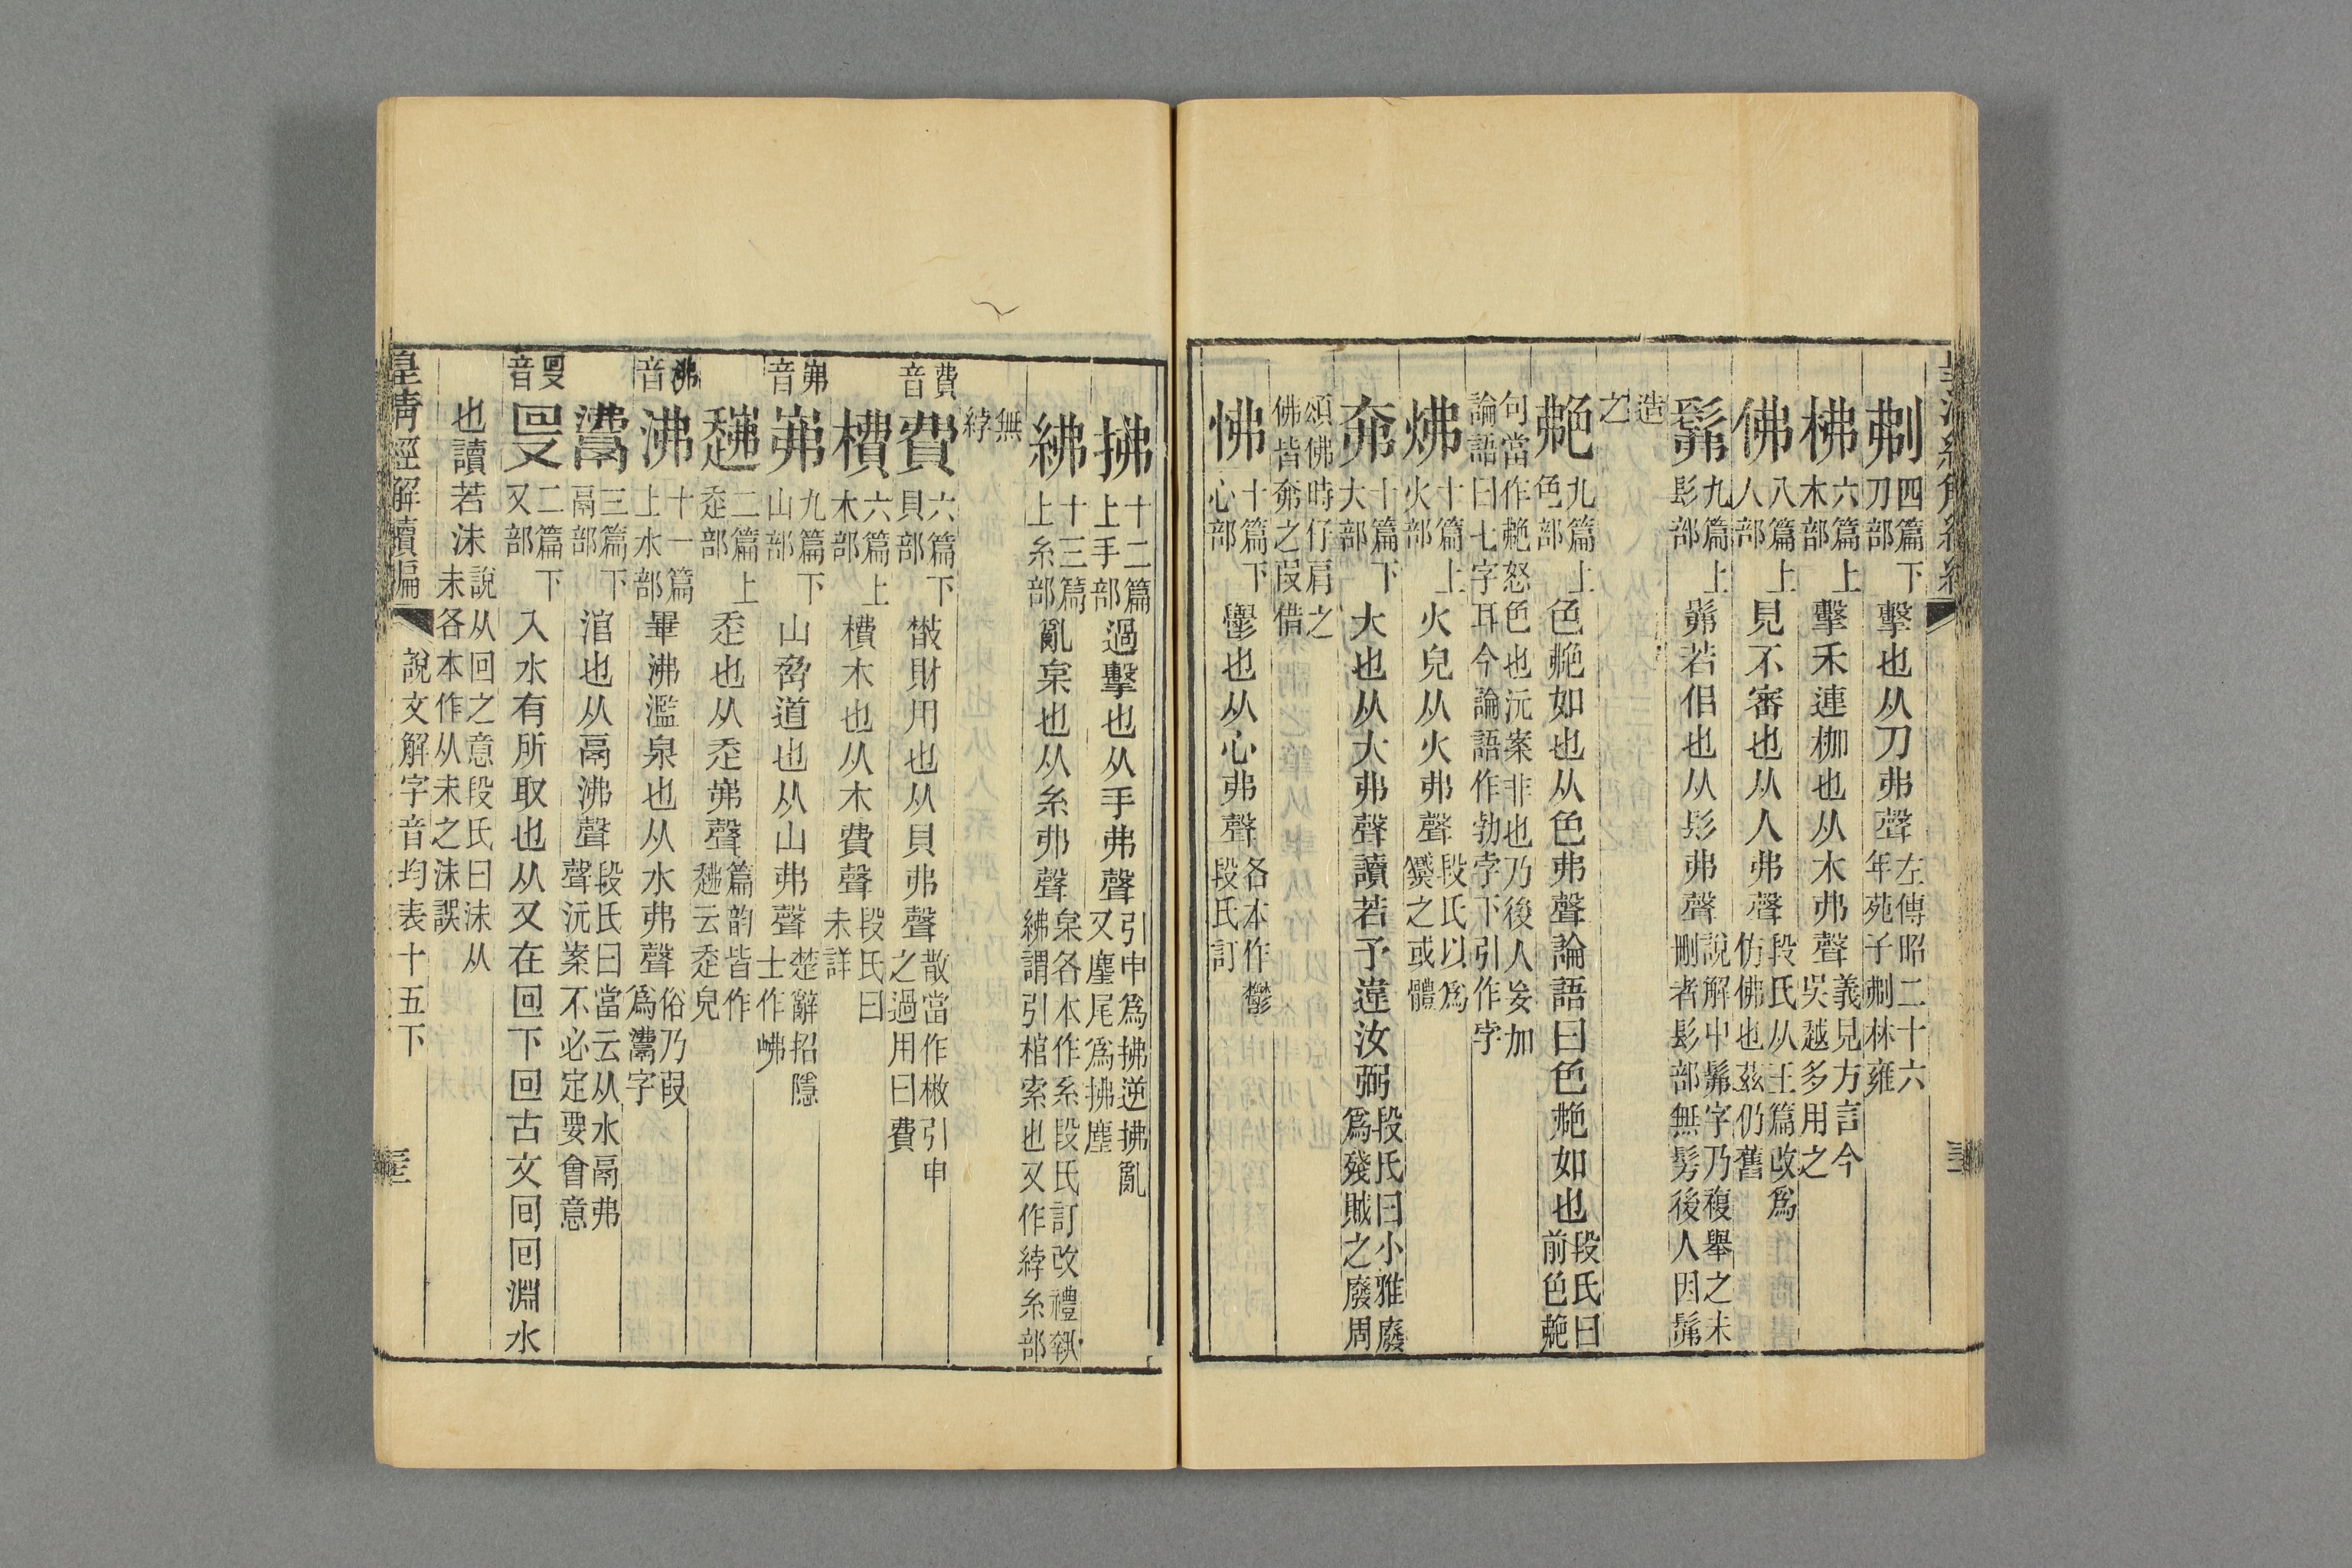 刜四篇下刀部擊也从刀弗聲左傳昭二十六年苑子刜林雍
柫六篇上木部擊禾連枷也从木弗聲義見方言今吳越多用之
佛八篇上人部見不審也从人弗聲段氏从玉篇改爲仿佛也茲仍舊
髴九篇上髟部髴若佀也从髟弗聲說解中髴字乃複舉之未刪者髟部無髣後人因髴
造之
艴九篇上色部色艴如也从色弗聲論語曰色艴如也段氏曰前色艴
句當作艴怒色也沅案非也乃後人妄加論語曰七字耳今論語作勃孛下引作孛
炥十篇上火部火皃从火弗聲段氏以爲㷶之或體
奜十篇下大部大也从大弗聲讀若予違汝弼段氏曰小雅廢爲殘賊之廢周
頌佛時仔肩之佛皆奜之叚借
怫十篇下心部鬱也从心弗聲各本作鬱段氏訂
拂十二篇上手部過擊也从手弗聲引申爲拂逆拂亂又麈尾爲拂麈
紼十三篇上糸部亂枲也从糸弗聲枲各本作系段氏訂改禮執紼謂引棺索也又作綍糸部
無綍
費音
費六篇下貝部散財用也从貝弗聲散當作㪔引申之過用曰費
櫠六篇上木部櫠木也从木費聲段氏曰未詳
岪音
岪九篇下山部山脅道也从山弗聲楚辭招隱士作岪
二篇上走部走也从走岪聲篇韵皆作云走皃
沸音
沸十一篇上水部畢沸濫泉也从水弗聲俗乃叚爲灊字
三篇下鬲部涫也从鬲沸聲段氏曰當云从水鬲弗聲沅案不必定要會意
𠬛音
𠬛二篇下又部入水有所取也从又在回下回古文回回淵水
也讀若沬說从回之意段氏曰沬从未各本作从末之沫誤
皇清經解續編
說文解字音均表十五下